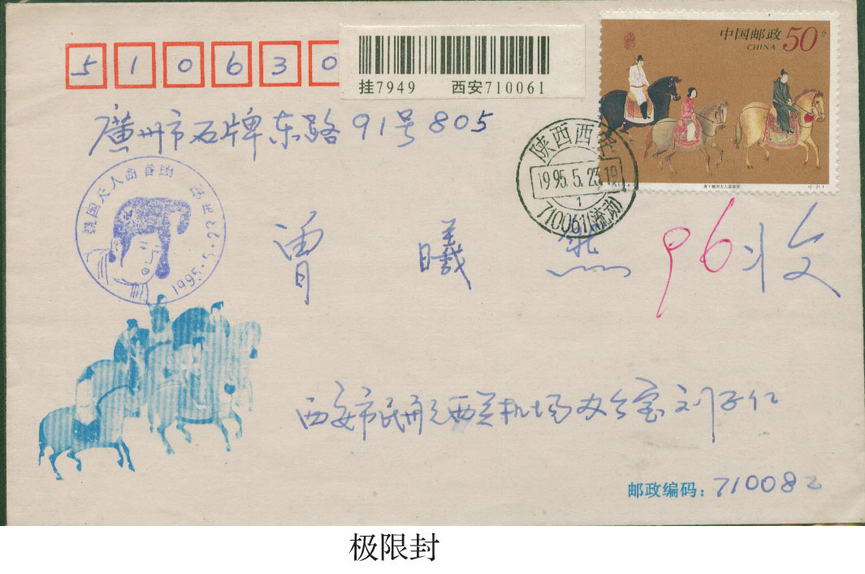 510630
挂7949 西安710061
中国邮政 50分
CHINA
廣州市石牌东路91号805
陕西西安
1995.5.23.19
1
710061(流动)
虢国夫人游春图
1995.5.23 西安
曾曦
96收
西安市民航西关机场办公室刘子仁
邮政编码：710082
极限封